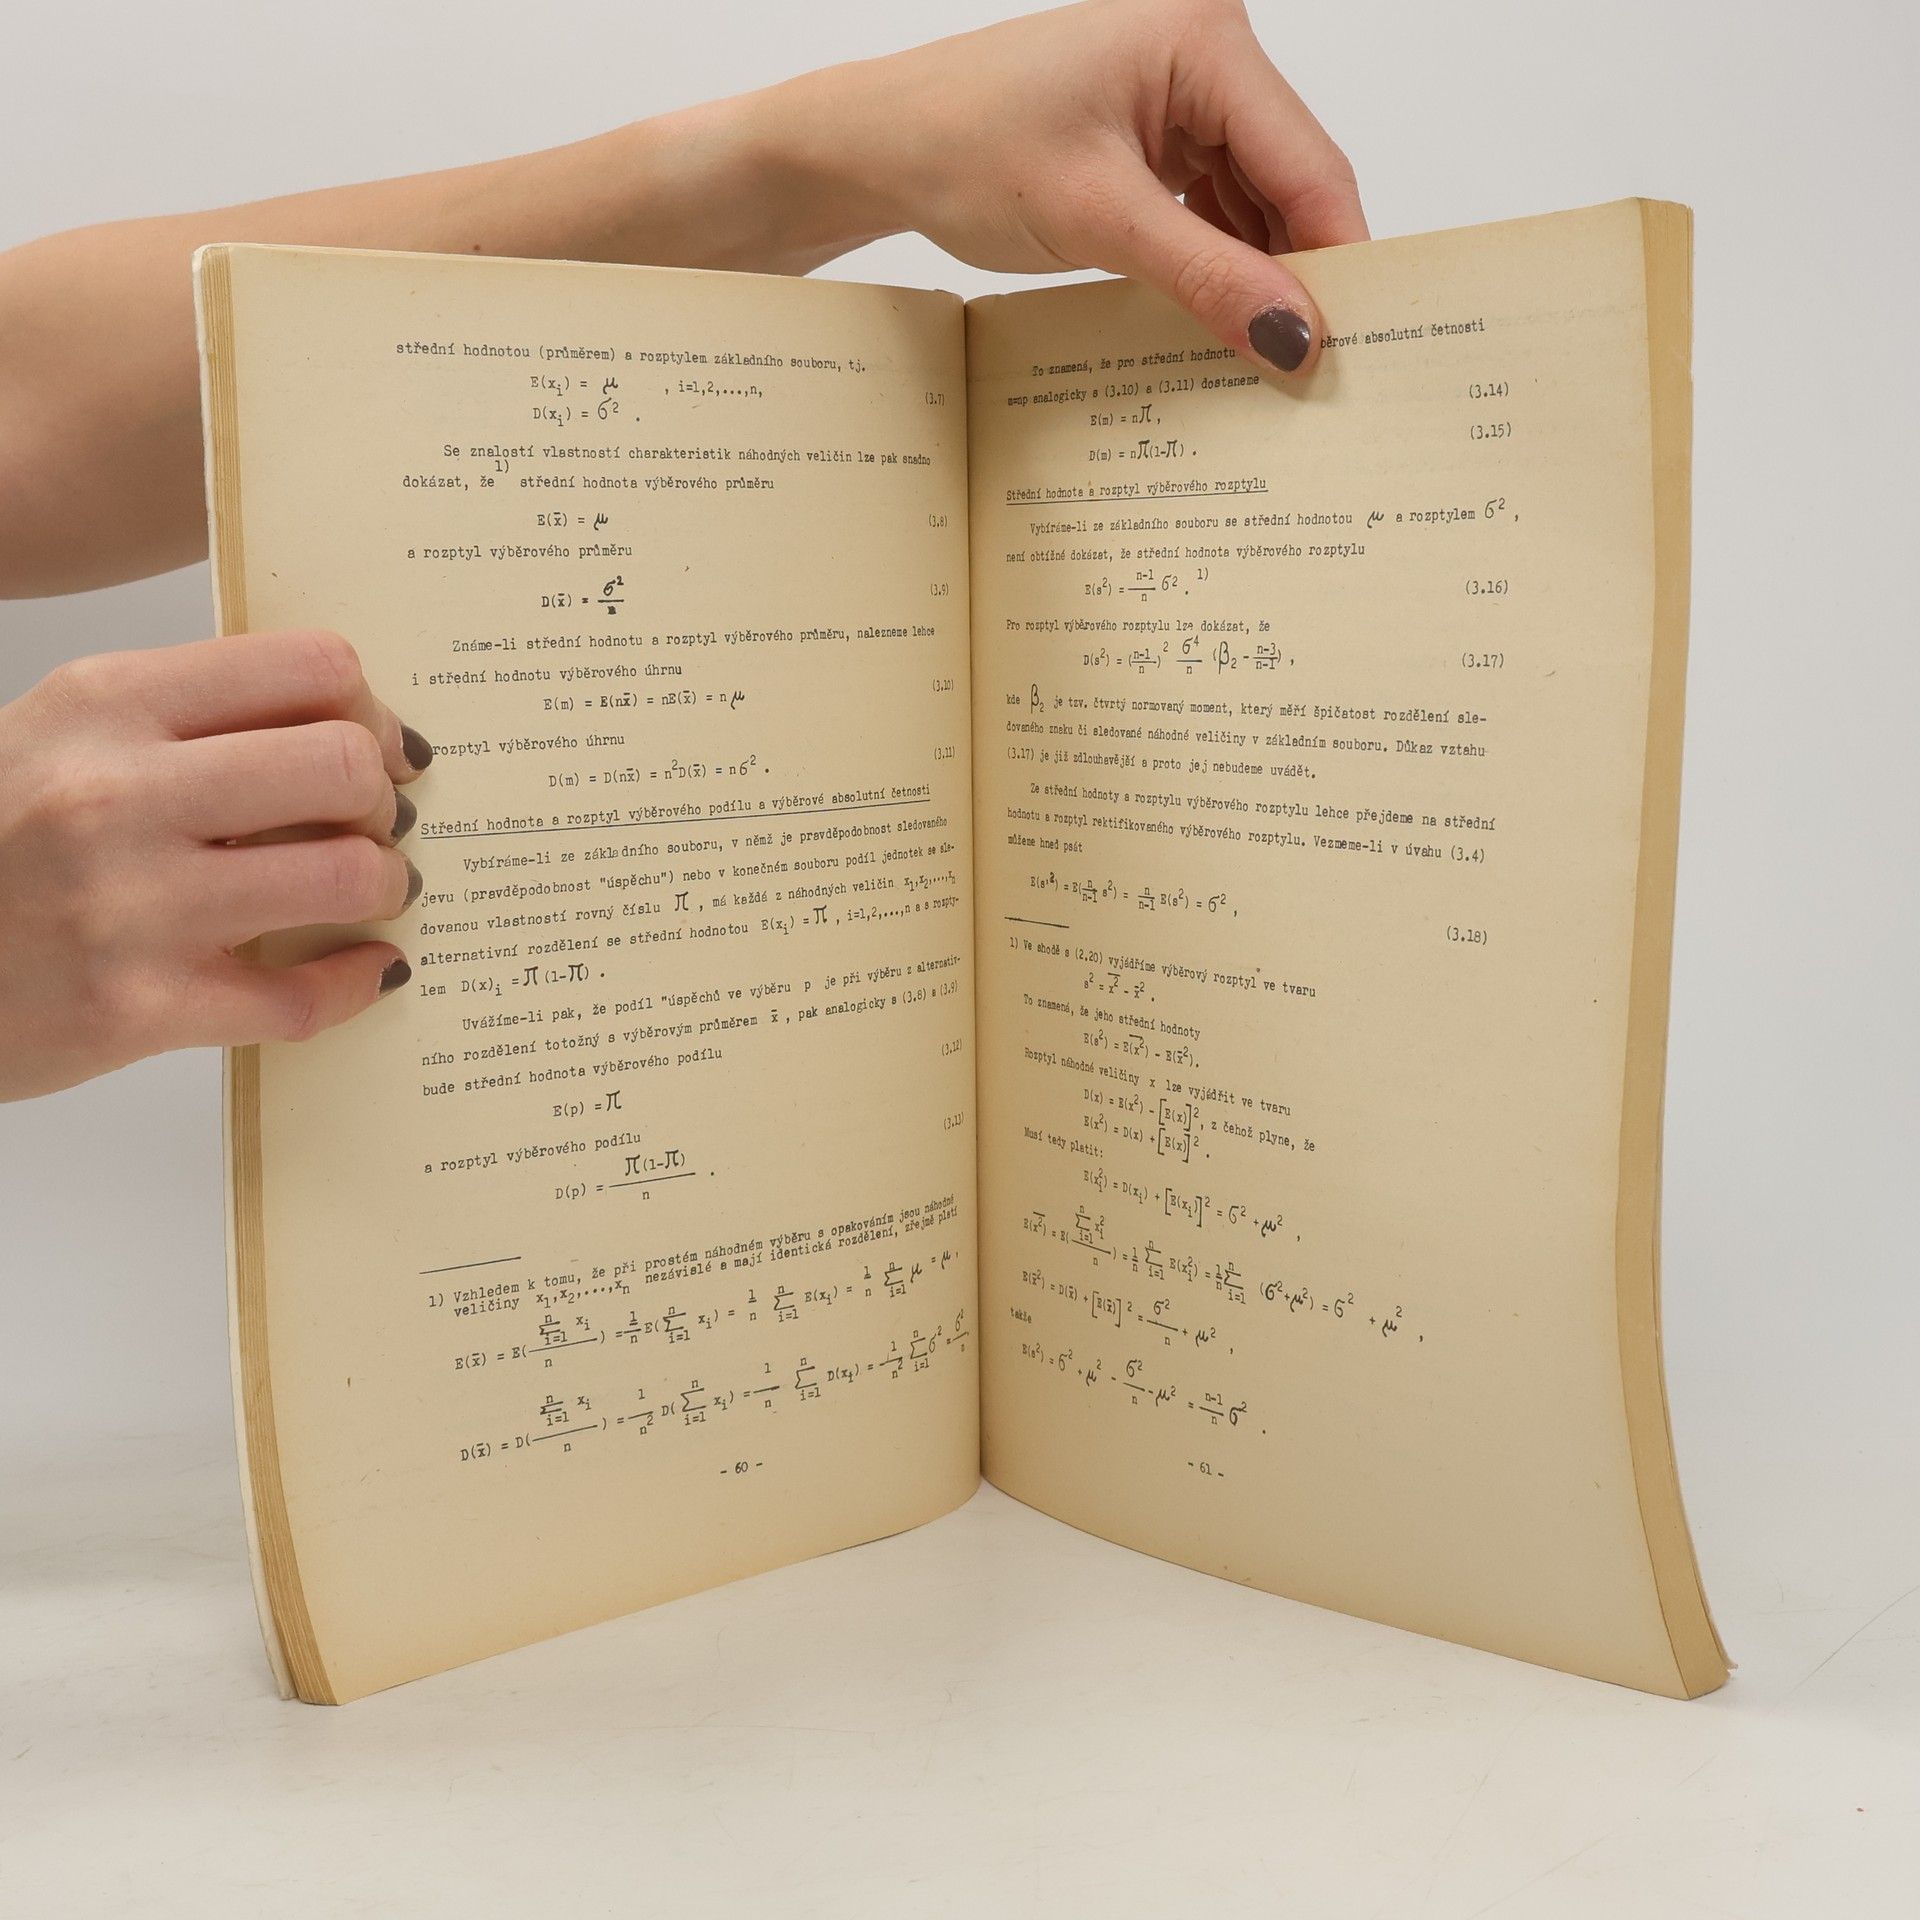 střední hodnotou (průměrem) a rozptylem základního souboru, tj.
E(xᵢ) = μ , i=1,2,...,n,
D(xᵢ) = σ² . (3.7)
Se znalostí vlastností charakteristik náhodných veličin lze pak snadno
dokázat, že ¹⁾ střední hodnota výběrového průměru
E(x̄) = μ (3.8)
a rozptyl výběrového průměru
D(x̄) = σ²/n (3.9)
Známe-li střední hodnotu a rozptyl výběrového průměru, nalezneme lehce
i střední hodnotu výběrového úhrnu
E(m) = E(nx̄) = nE(x̄) = nμ (3.10)
rozptyl výběrového úhrnu
D(m) = D(nx̄) = n²D(x̄) = nσ² . (3.11)
Střední hodnota a rozptyl výběrového podílu a výběrové absolutní četnosti
Vybíráme-li ze základního souboru, v němž je pravděpodobnost sledovaného
jevu (pravděpodobnost "úspěchu") nebo v konečném souboru podíl jednotek se sle-
dovanou vlastností rovný číslu π , má každá z náhodných veličin x₁,x₂,...,xₙ
alternativní rozdělení se střední hodnotou E(xᵢ) = π , i=1,2,...,n a s rozpty-
lem D(x)ᵢ = π(1-π) .
Uvážíme-li pak, že podíl "úspěchů ve výběru p je při výběru z alternativ-
ního rozdělení totožný s výběrovým průměrem x̄ , pak analogicky s (3.8) a (3.9)
bude střední hodnota výběrového podílu
E(p) = π (3.12)
a rozptyl výběrového podílu
D(p) = π(1-π)/n . (3.13)
1) Vzhledem k tomu, že při prostém náhodném výběru s opakováním jsou náhodné
veličiny x₁,x₂,...,xₙ nezávislé a mají identická rozdělení, zřejmě platí
E(x̄) = E(∑ⁿᵢ₌₁ xᵢ / n) = 1/n E(∑ⁿᵢ₌₁ xᵢ) = 1/n ∑ⁿᵢ₌₁ E(xᵢ) = 1/n ∑ⁿᵢ₌₁ μ = μ ,
D(x̄) = D(∑ⁿᵢ₌₁ xᵢ / n) = 1/n² D(∑ⁿᵢ₌₁ xᵢ) = 1/n ∑ⁿᵢ₌₁ D(xᵢ) = 1/n² ∑ⁿᵢ₌₁ σ² = σ²/n
- 60 -
To znamená, že pro střední hodnotu běrové absolutní četnosti
m=np analogicky s (3.10) a (3.11) dostaneme
E(m) = nπ , (3.14)
D(m) = nπ(1-π) . (3.15)
Střední hodnota a rozptyl výběrového rozptylu
Vybíráme-li ze základního souboru se střední hodnotou μ a rozptylem σ² ,
není obtížné dokázat, že střední hodnota výběrového rozptylu
E(s²) = n-1/n σ² . ¹⁾ (3.16)
Pro rozptyl výběrového rozptylu lze dokázat, že
D(s²) = (n-1/n)² σ⁴/n (β₂ - n-3/n-1) , (3.17)
kde β₂ je tzv. čtvrtý normovaný moment, který měří špičatost rozdělení sle-
dovaného znaku či sledované náhodné veličiny v základním souboru. Důkaz vztahu
(3.17) je již zdlouhavější a proto jej nebudeme uvádět.
Ze střední hodnoty a rozptylu výběrového rozptylu lehce přejdeme na střední
hodnotu a rozptyl rektifikovaného výběrového rozptylu. Vezmeme-li v úvahu (3.4)
můžeme hned psát
E(s'²) = E(n/n-1 s²) = n/n-1 E(s²) = σ² ,
(3.18)
1) Ve shodě s (2.20) vyjádříme výběrový rozptyl ve tvaru
s² = x̅²̅ - x̄² .
To znamená, že jeho střední hodnoty
E(s²) = E(x̅²̅) - E(x̄²).
Rozptyl náhodné veličiny x lze vyjádřit ve tvaru
D(x) = E(x²) - [E(x)]², z čehož plyne, že
E(x²) = D(x) + [E(x)]² .
Musí tedy platit:
E(xᵢ²) = D(xᵢ) + [E(xᵢ)]² = σ² + μ² ,
E(x̅²̅) = E(∑ⁿᵢ₌₁ xᵢ² / n) = 1/n ∑ⁿᵢ₌₁ E(xᵢ²) = 1/n ∑ⁿᵢ₌₁ (σ²+μ²) = σ² + μ² ,
E(x̄²) = D(x̄) + [E(x̄)]² = σ²/n + μ² ,
takže
E(s²) = σ² + μ² - σ²/n - μ² = n-1/n σ² .
- 61 -